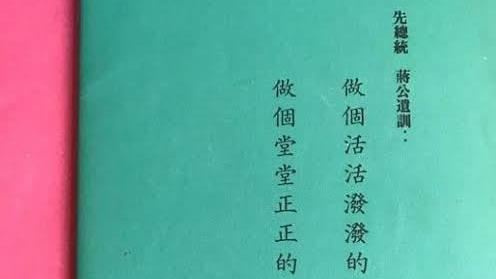 先總統　蔣公遺訓：
做個活活潑潑的
做個堂堂正正的